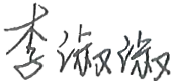 李淑淑